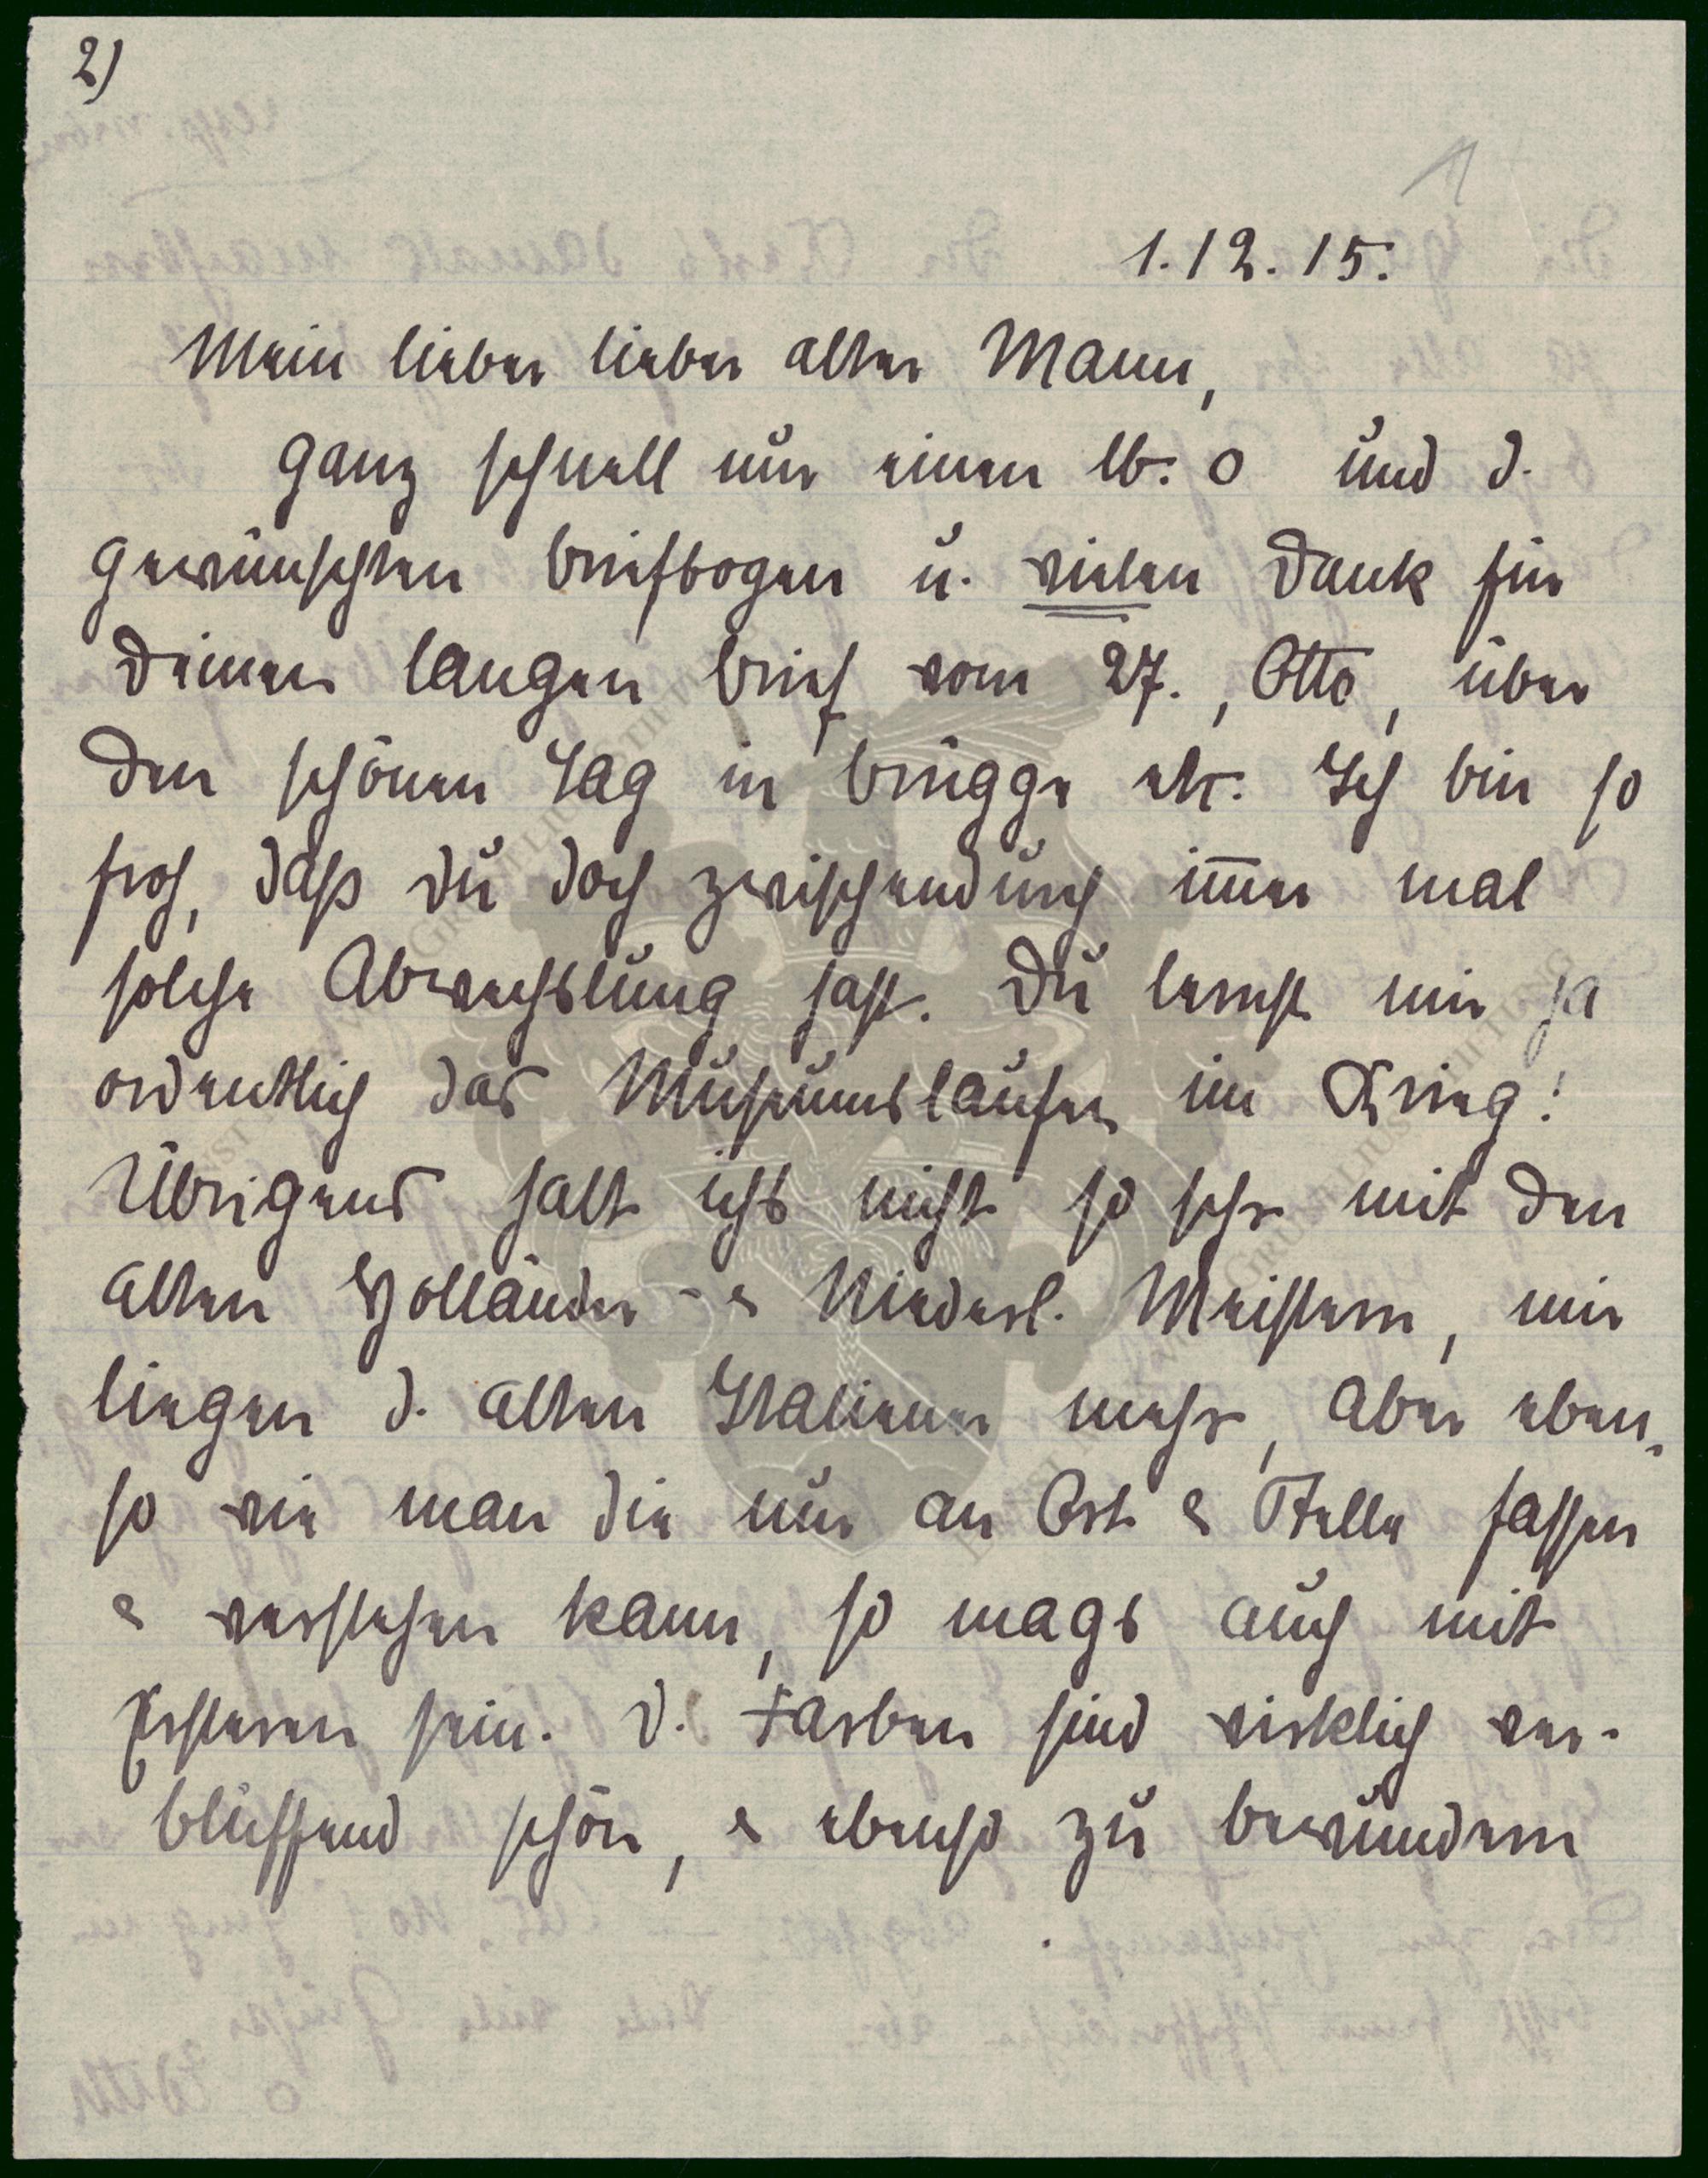 2)
1.12.15.
Mein lieber lieber alter Mann,
ganz schnell nur einen lb. o und d.
gewünschten Briefbogen u. vielen Dank für
Deinen langen Brief vom 27., Otto, über
den schönen Tag in Brügge etc. Ich bin so
froh, daß Du doch zwischendurch im̅er mal
solche Abwechslung hast. Du lernst mir ja
ordentlich das Museumslaufen im Krieg!
Übrigens halt ichs nicht so sehr mit den
alten Holländer- & Niederl. Meistern, mir
liegen d. alten Italiener mehr, aber eben-
so wie man die nur an Ort & Stelle fassen
& verstehen kann, so mags auch mit
Ersteren sein. D. Farben sind wirklich ver-
blüffend schön, & ebenso zu bewundern